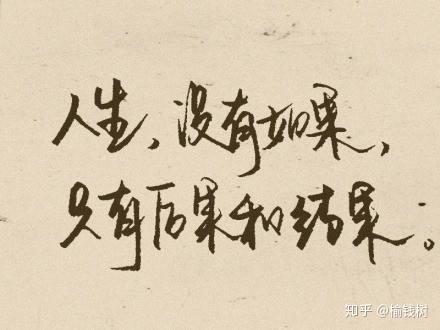 人生，没有如果，
只有后果和结果。
知乎 @榆钱树